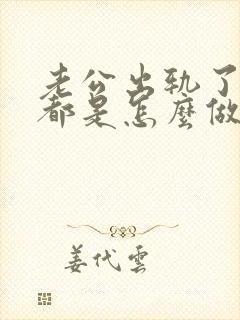 老公出轨了
都是怎麽做
姜代雲